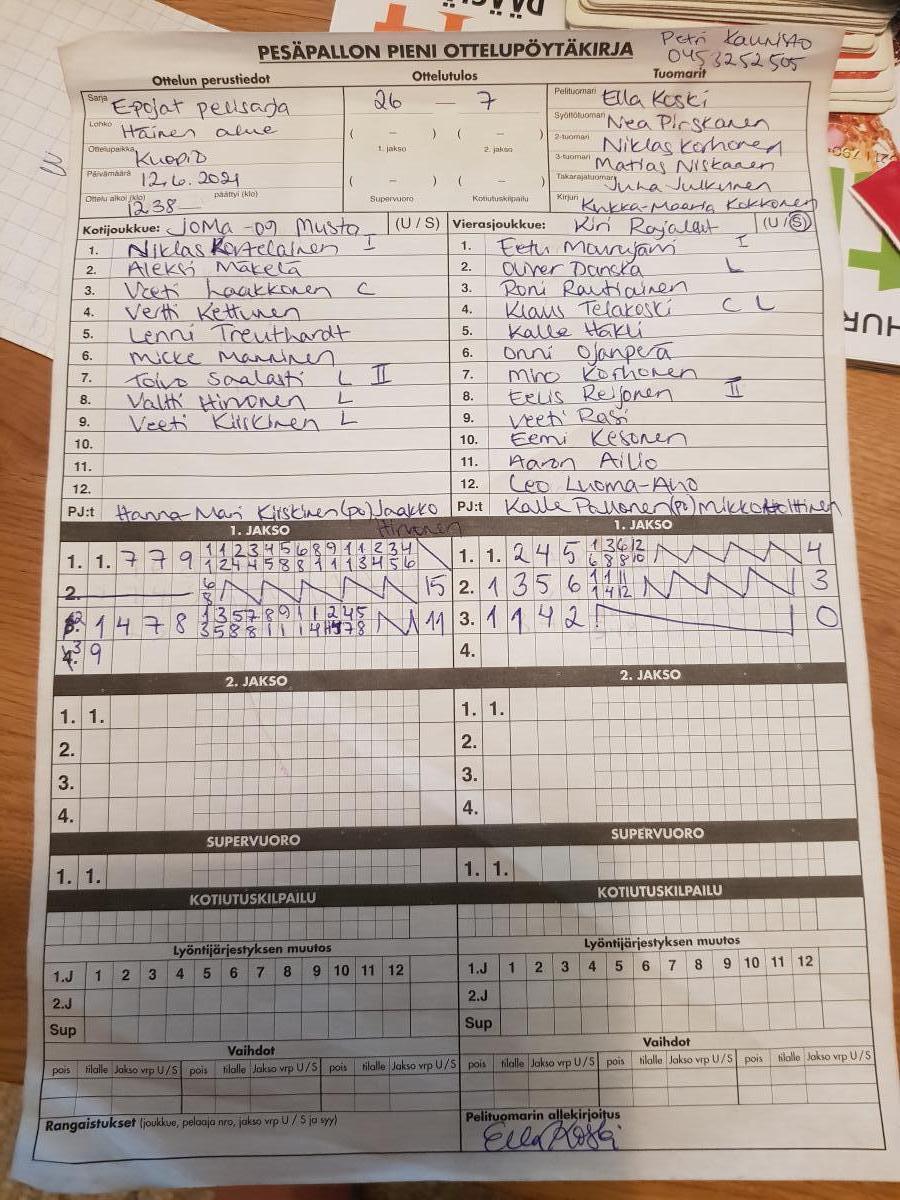 Petri Kaunisto
0453252505
PESÄPALLON PIENI OTTELUPÖYTÄKIRJA
Ottelun perustiedot Ottelutulos Tuomarit
Sarja E-pojat pelisarja 26 — 7 Pelituomari Ella Koski
Lohko Itäinen alue ( – ) ( – ) Syöttötuomari Nea Pirskanen
Ottelupaikka Kuopio 1. jakso 2. jakso 2-tuomari Niklas Korhonen
3-tuomari Matias Niskanen
Päivämäärä 12.6.2021 ( – ) ( – ) Takarajatuomari Juha Julkunen
Ottelu alkoi (klo) 1238 – päättyi (klo) Supervuoro Kotiutuskilpailu Kirjuri Kukka-Maaria Kokkonen
Kotijoukkue: JoMa -09 Musta (U / S) Vierasjoukkue: Kiri Rajalat (U / S)
1. Niklas Kortelainen I 1. Eetu Maunujärvi I
2. Aleksi Mäkelä 2. Oliver Danska L
3. Veeti Laakkonen C 3. Roni Rautiainen
4. Vertti Kettunen 4. Klaus Telakoski C L
5. Lenni Treuthardt 5. Kalle Häkli
6. Micke Manninen 6. Onni Ojanperä
7. Toivo Saalasti L II 7. Miro Korhonen
8. Valtti Hirvonen L 8. Eelis Reijonen II
9. Veeti Kiiskinen L 9. Veeti Rasi
10. 10. Eemi Kesonen
11. 11. Aaron Ailio
12. 12. Leo Luoma-Aho
PJ:t Hanna-Mari Kiiskinen (po) Jaakko Hirvonen PJ:t Kalle Pallonen (po) Mikko Holttinen
1. JAKSO 1. JAKSO
1. 1. 7 7 9 1 1 2 3 4 5 6 8 9 1 1 2 3 4 1. 1. 2 4 5 1 3 6 12 4
1 2 4 4 5 8 8 1 1 1 3 4 5 6 6 8 8 10
2. 6 15 2. 1 3 5 6 1 1 11 3
8 1 4 12
2 1 4 7 8 1 3 5 7 8 9 1 1 2 4 5 11 3. 1 1 4 2 0
3 5 8 8 1 1 1 4 7 8
3 9 4.
2. JAKSO 2. JAKSO
1. 1. 1. 1.
2. 2.
3. 3.
4. 4.
SUPERVUORO SUPERVUORO
1. 1. 1. 1.
KOTIUTUSKILPAILU KOTIUTUSKILPAILU
Lyöntijärjestyksen muutos Lyöntijärjestyksen muutos
1.J 1 2 3 4 5 6 7 8 9 10 11 12 1.J 1 2 3 4 5 6 7 8 9 10 11 12
2.J 2.J
Sup Sup
Vaihdot Vaihdot
pois tilalle Jakso vrp U/S pois tilalle Jakso vrp U/S pois tilalle Jakso vrp U/S pois tilalle Jakso vrp U/S pois tilalle Jakso vrp U/S pois tilalle Jakso vrp U/S
Rangaistukset (joukkue, pelaaja nro, jakso vrp U / S ja syy) Pelituomarin allekirjoitus
Ella Koski